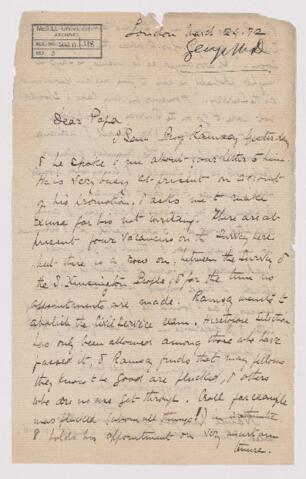 McGILL UNIVERSITY
ARCHIVES
ACC. NO.
REF. 3
London March 24.72
George M D
Dear Papa
I saw Prof Ramsay yesterday
& he spoke to me about your letter to him.
He is very busy at present on account
of his promotion, & asks me to make
excuse for his not writing. There are at
present four vacancies on the Survey here
but there is a row on, between the Survey &
the S. Kensington People, & for the time no
appointments are made. Ramsay wants to
abolish the Civil Service exam. Heretofore selection
has only been allowed among those who have
passed it, & Ramsay finds that many fellows
they know to be good are plucked, & others
who are no use get through. Croll for example
was plucked (above all things!) in arithmetic
& holds his appointment on very uncertain
tenure.